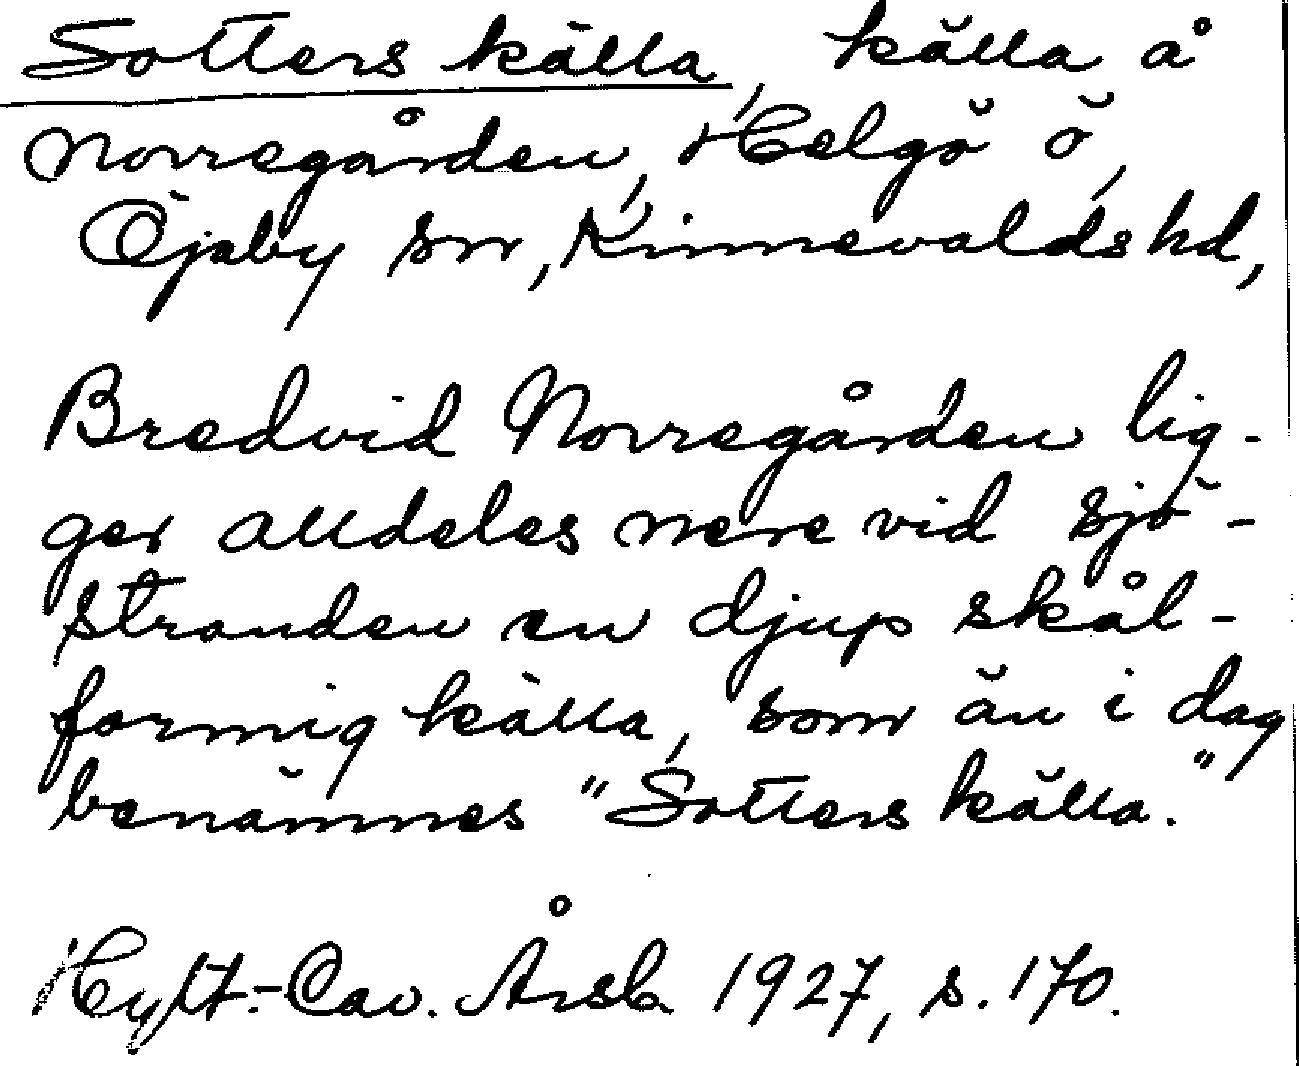 Sotters källa, källa å
Norregården, Helgö ö,
Öjaby sn, Kinnevalds hd,
Bredvid Norregården lig-
ger alldeles nere vid sjö-
stranden en djup skål-
formig källa, som än i dag
benämnes "Sotters källa."
Hylt.-Cav. Årsb. 1927, s. 170.